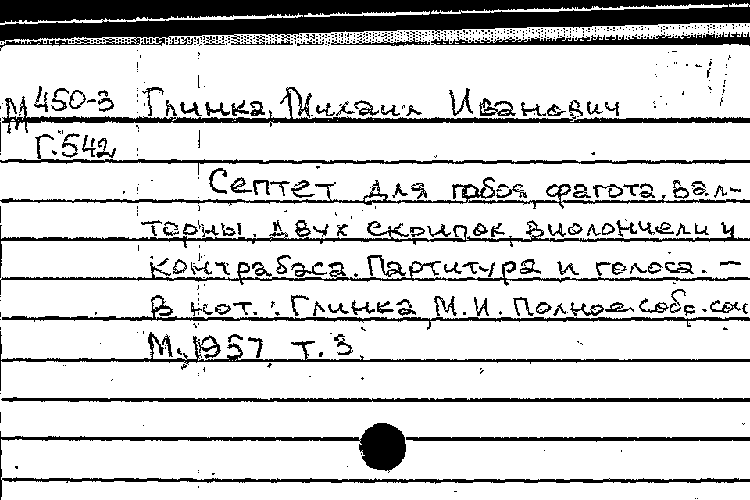 М 450-3 Глинка, Михаил Иванович
Г.542
Септет для гобоя, фагота, вал-
торны, двух скрипок, виолончели и
контрабаса. Партитура и голоса. –
В нот.: Глинка, М.И. Полное собр. соч
М., 1957 Т. 3.